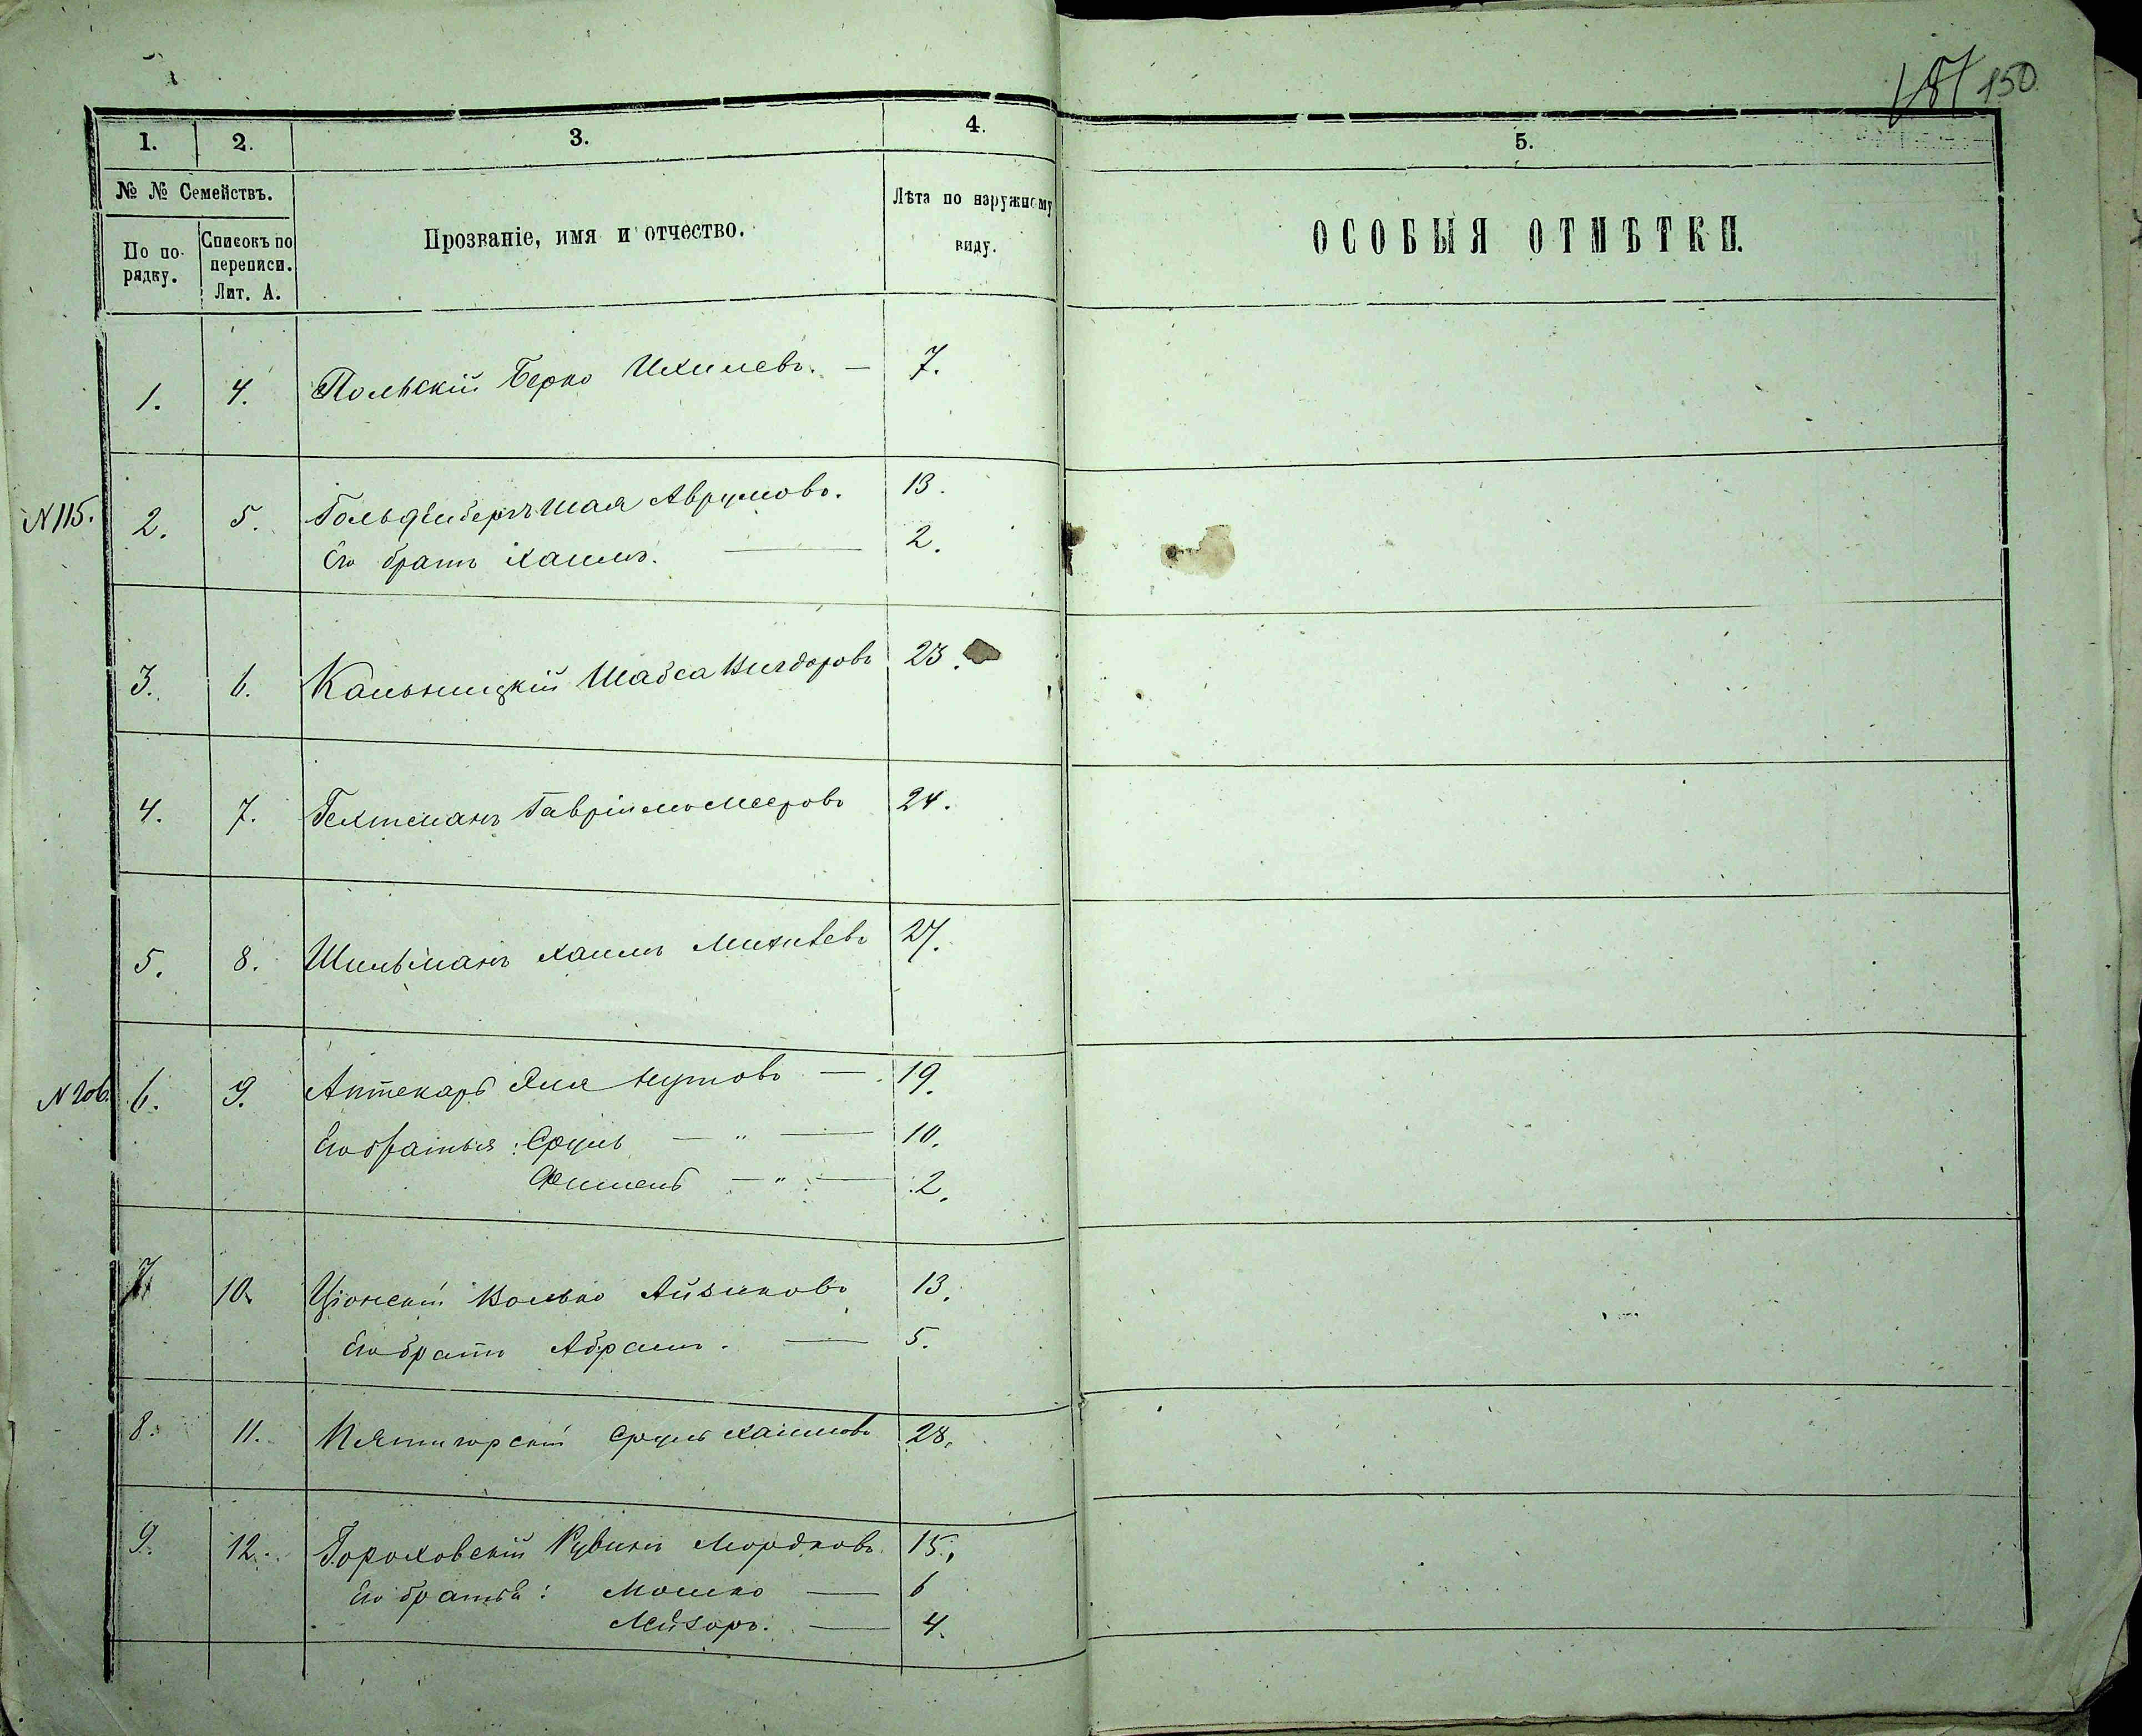 181 150
1. 2. 3. 4. 5.
№ № Семействъ.
По порядку. Списокъ по переписи. Лит. А.
Прозваніе, имя и отчество.
Лѣта по наружному виду.
ОСОБЫЯ ОТМѢТКИ.
1. 4. Польскій Берко Ихилевъ. — 7.
N 115. 2. 5. Гольденбергъ Шая Аврумовъ. 13.
Его братъ Хаимъ. — 2.
3. 6. Кальницкій Шабса Вигдоровъ 23.
4. 7. Гехтманъ Гавріилъ Мееровъ 24.
5. 8. Шильманъ Хаимъ 27.
N 206. 6. 9. Аптекарь Эля Нутовъ — 19.
Его братья: Сруль — " — 10.
Фишель — " — 2.
7. 10. Ціонскій Волько Айзиковъ 13.
Его братъ Абрамъ. — 5.
8. 11. Пятигорскій Сруль Хаимовъ 28.
9. 12. Гороховскій Рувинъ Мордковъ 15.
Его братья: Мошко — 6
Лейзоръ. — 4.